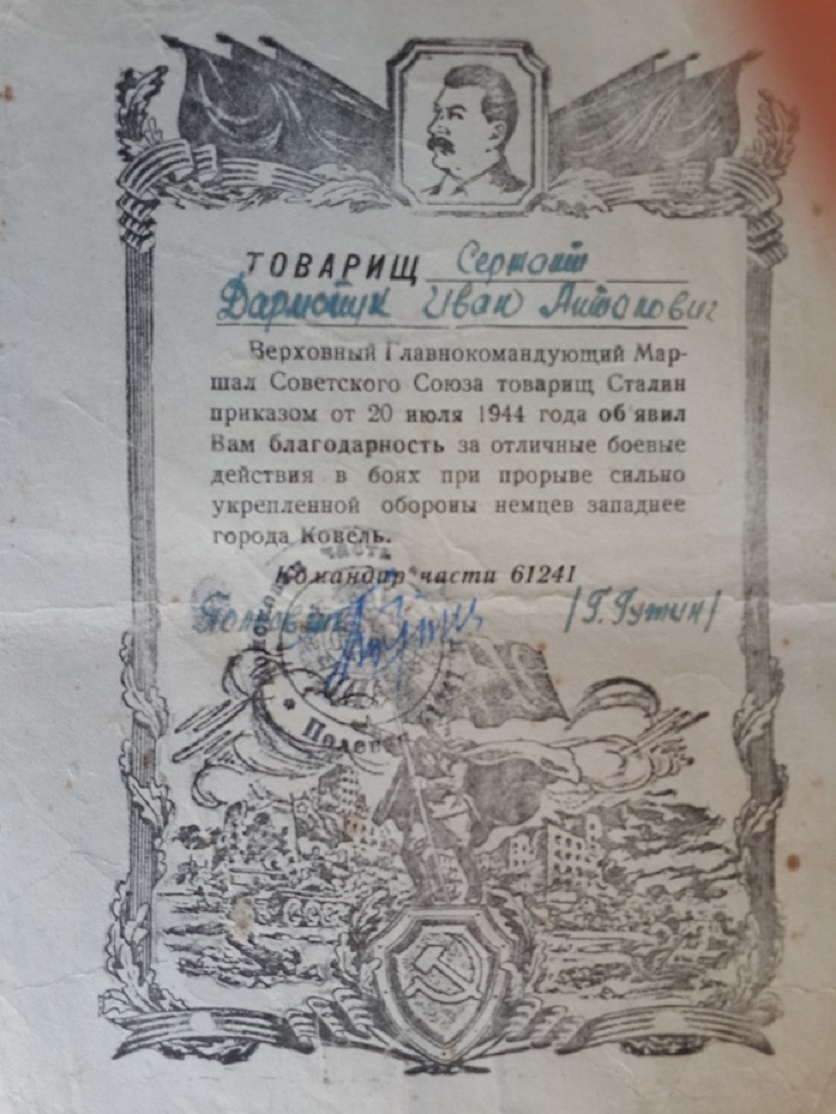 ТОВАРИЩ Сержант
Дармотук Иван Антонович
Верховный Главнокомандующий Мар-
шал Советского Союза товарищ Сталин
приказом от 20 июля 1944 года об'явил
Вам благодарность за отличные боевые
действия в боях при прорыве сильно
укрепленной обороны немцев западнее
города Ковель.
Командир части 61241
Полковник /Г. Гутин/
Полевая 61241
часть
СССР